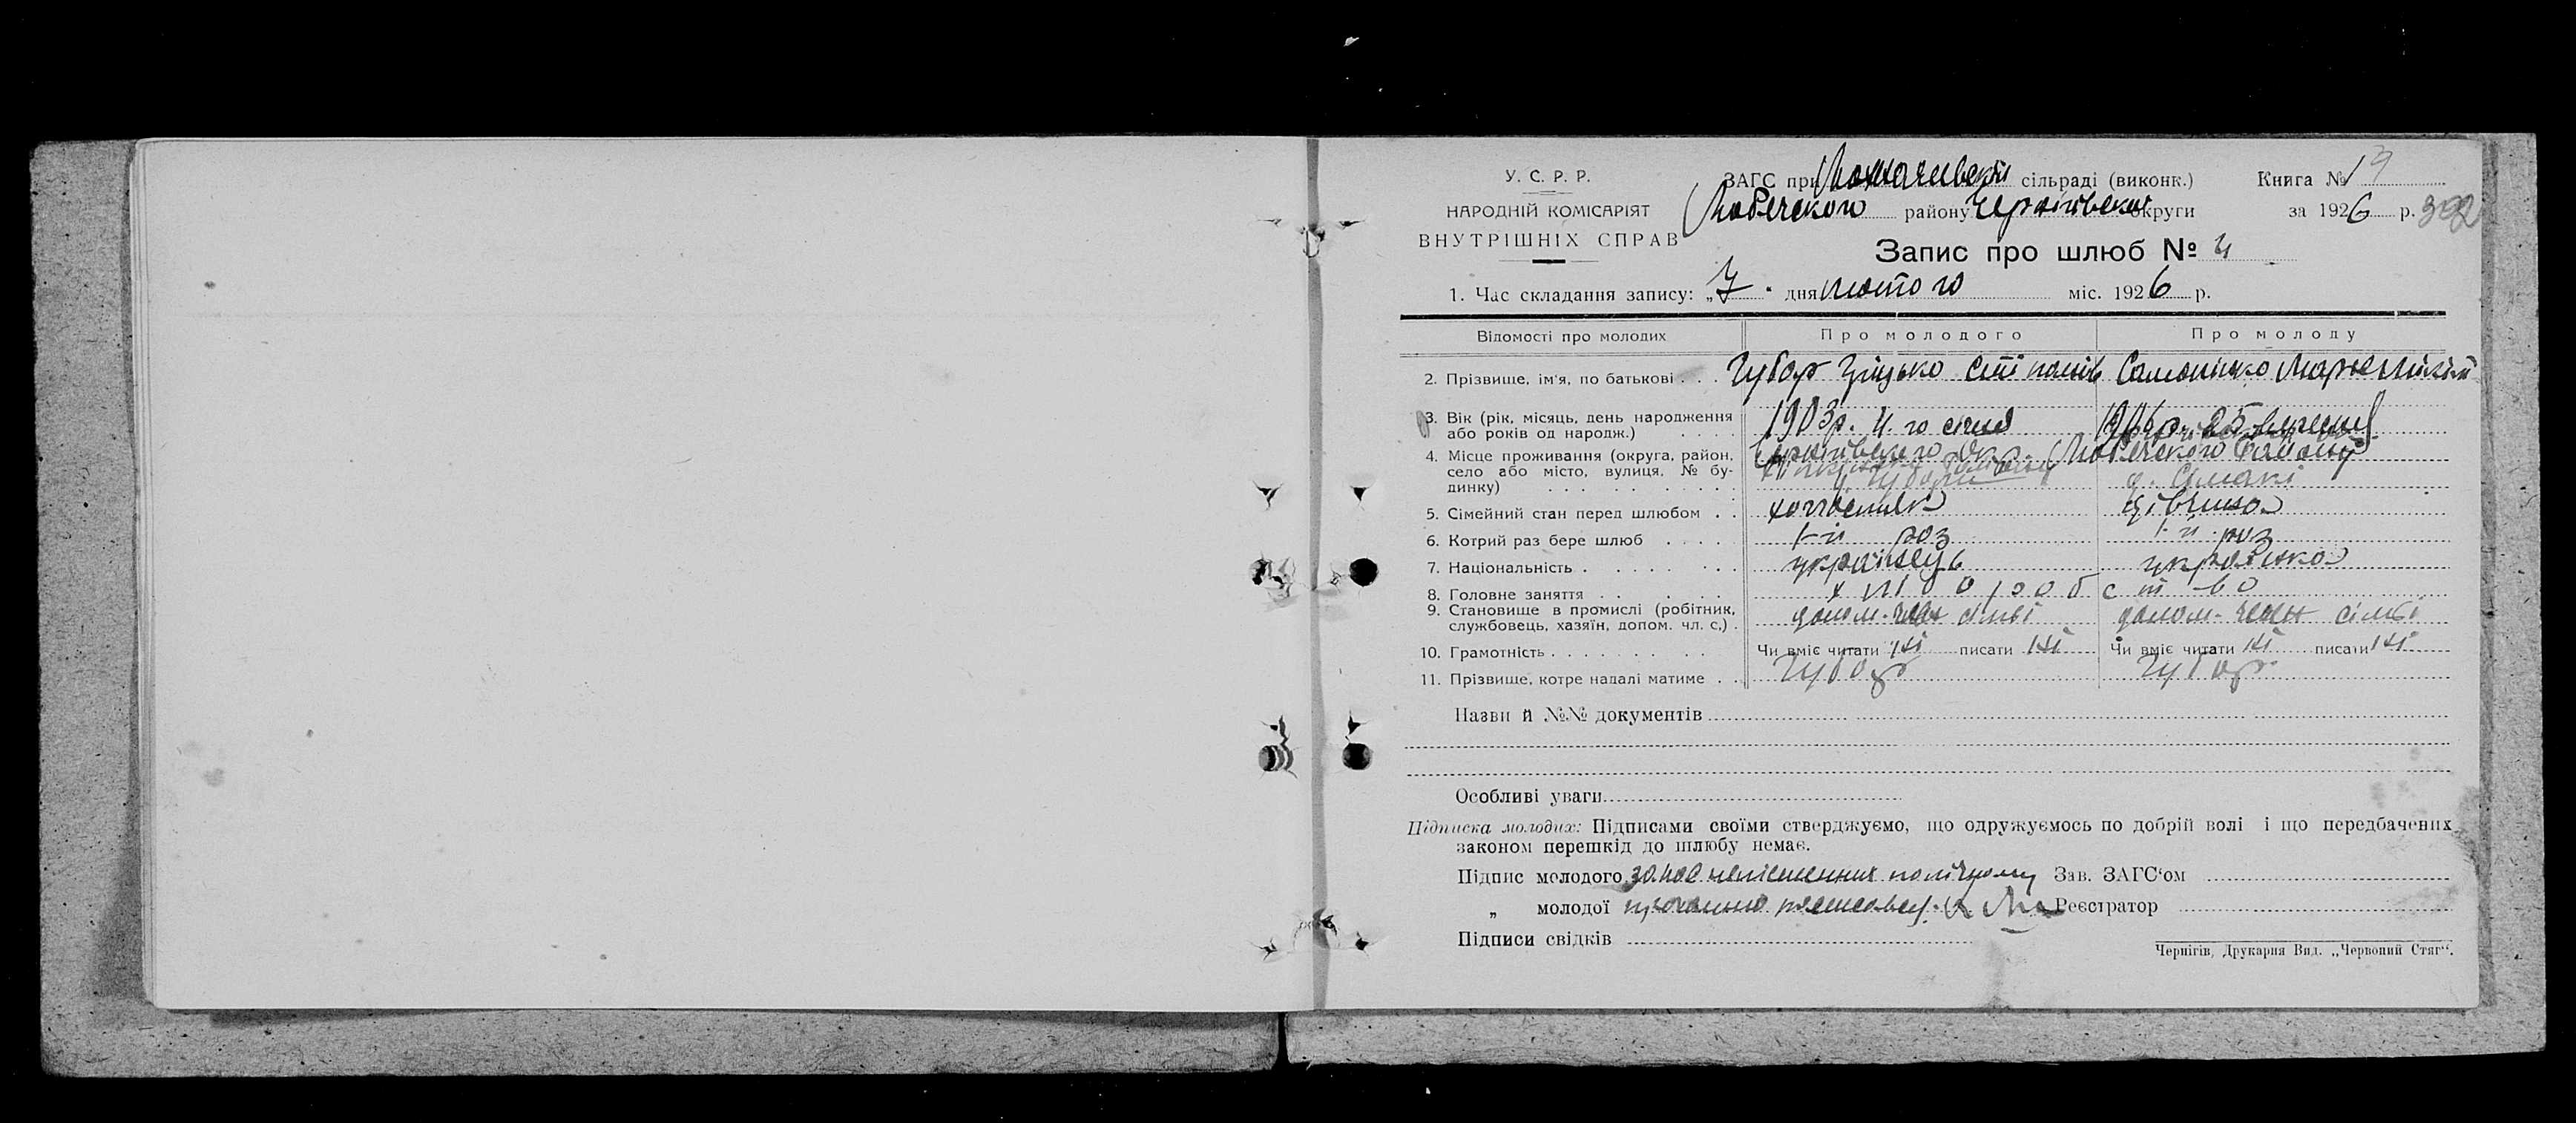 У. С. Р. Р.
НАРОДНІЙ КОМІСАРІЯТ
ВНУТРІШНІХ СПРАВ
ЗАГС при сільраді (виконк.)
Любечского району Чернігівськоі округи
Книга № 19
за 1926 р.
Запис про шлюб № 4
1. Час складання запису: „7" дня лютого міс. 1926 р.
Відомості про молодих Про молодого Про молоду
2. Прізвище, ім'я, по батькові . . . Губар Грицько Самонінко Марья
3. Вік (рік, місяць, день народження
або років од народж.) . . . . 1903р. 4. го січня 1906р. 25
4. Місце проживання (округа, район, Чернігівського Окр. Любечского району
село або місто, вулиця, № бу-
динку) . . . . . . . . д. Сімакі
5. Сімейний стан перед шлюбом . . дівчина
6. Котрий раз бере шлюб . . . . 1-й раз 1-й раз
7. Національність . . . . . . . українець українка
8. Головне заняття . . . . . . хліборобство
9. Становище в промислі (робітник,
службовець, хазяїн, допом. чл. с.) . допом. член сімьі допом. член сімьі
10. Грамотність . . . . . . . Чи вміє читати ні писати ні Чи вміє читати ні писати ні
11. Прізвище, котре надалі матиме . . Губар Губар
Назви й №№ документів
Особливі уваги
Підписка молодих: Підписами своїми стверджуємо, що одружуємось по добрій волі і що передбачених
законом перешкід до шлюбу немає.
Підпис молодого Зав. ЗАГС'ом
„ молодої Реєстратор
Підписи свідків
Чернігів, Друкарня Вид. „Червоний Стяг".